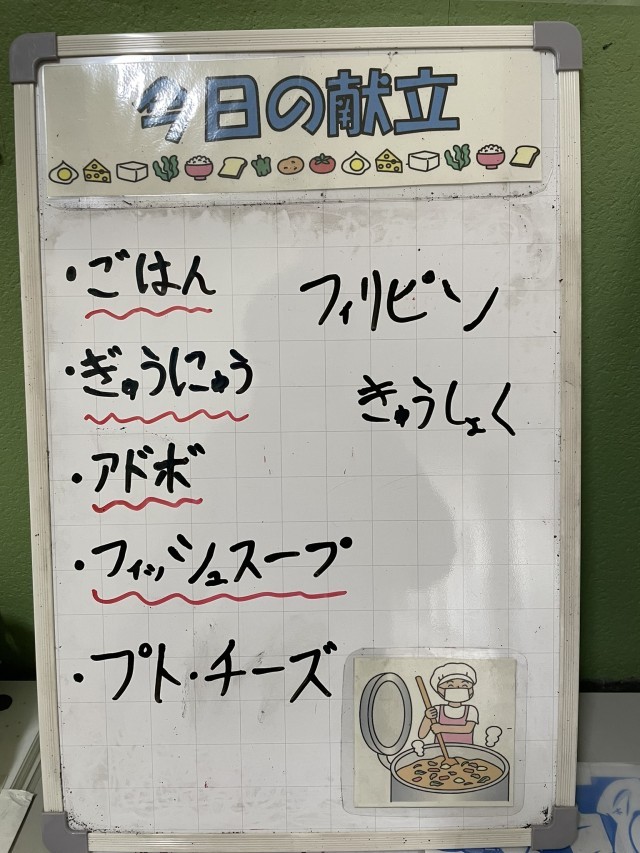 今日の献立
・ごはん
・ぎゅうにゅう
・アドボ
・フィッシュスープ
・プト・チーズ
フィリピン
きゅうしょく